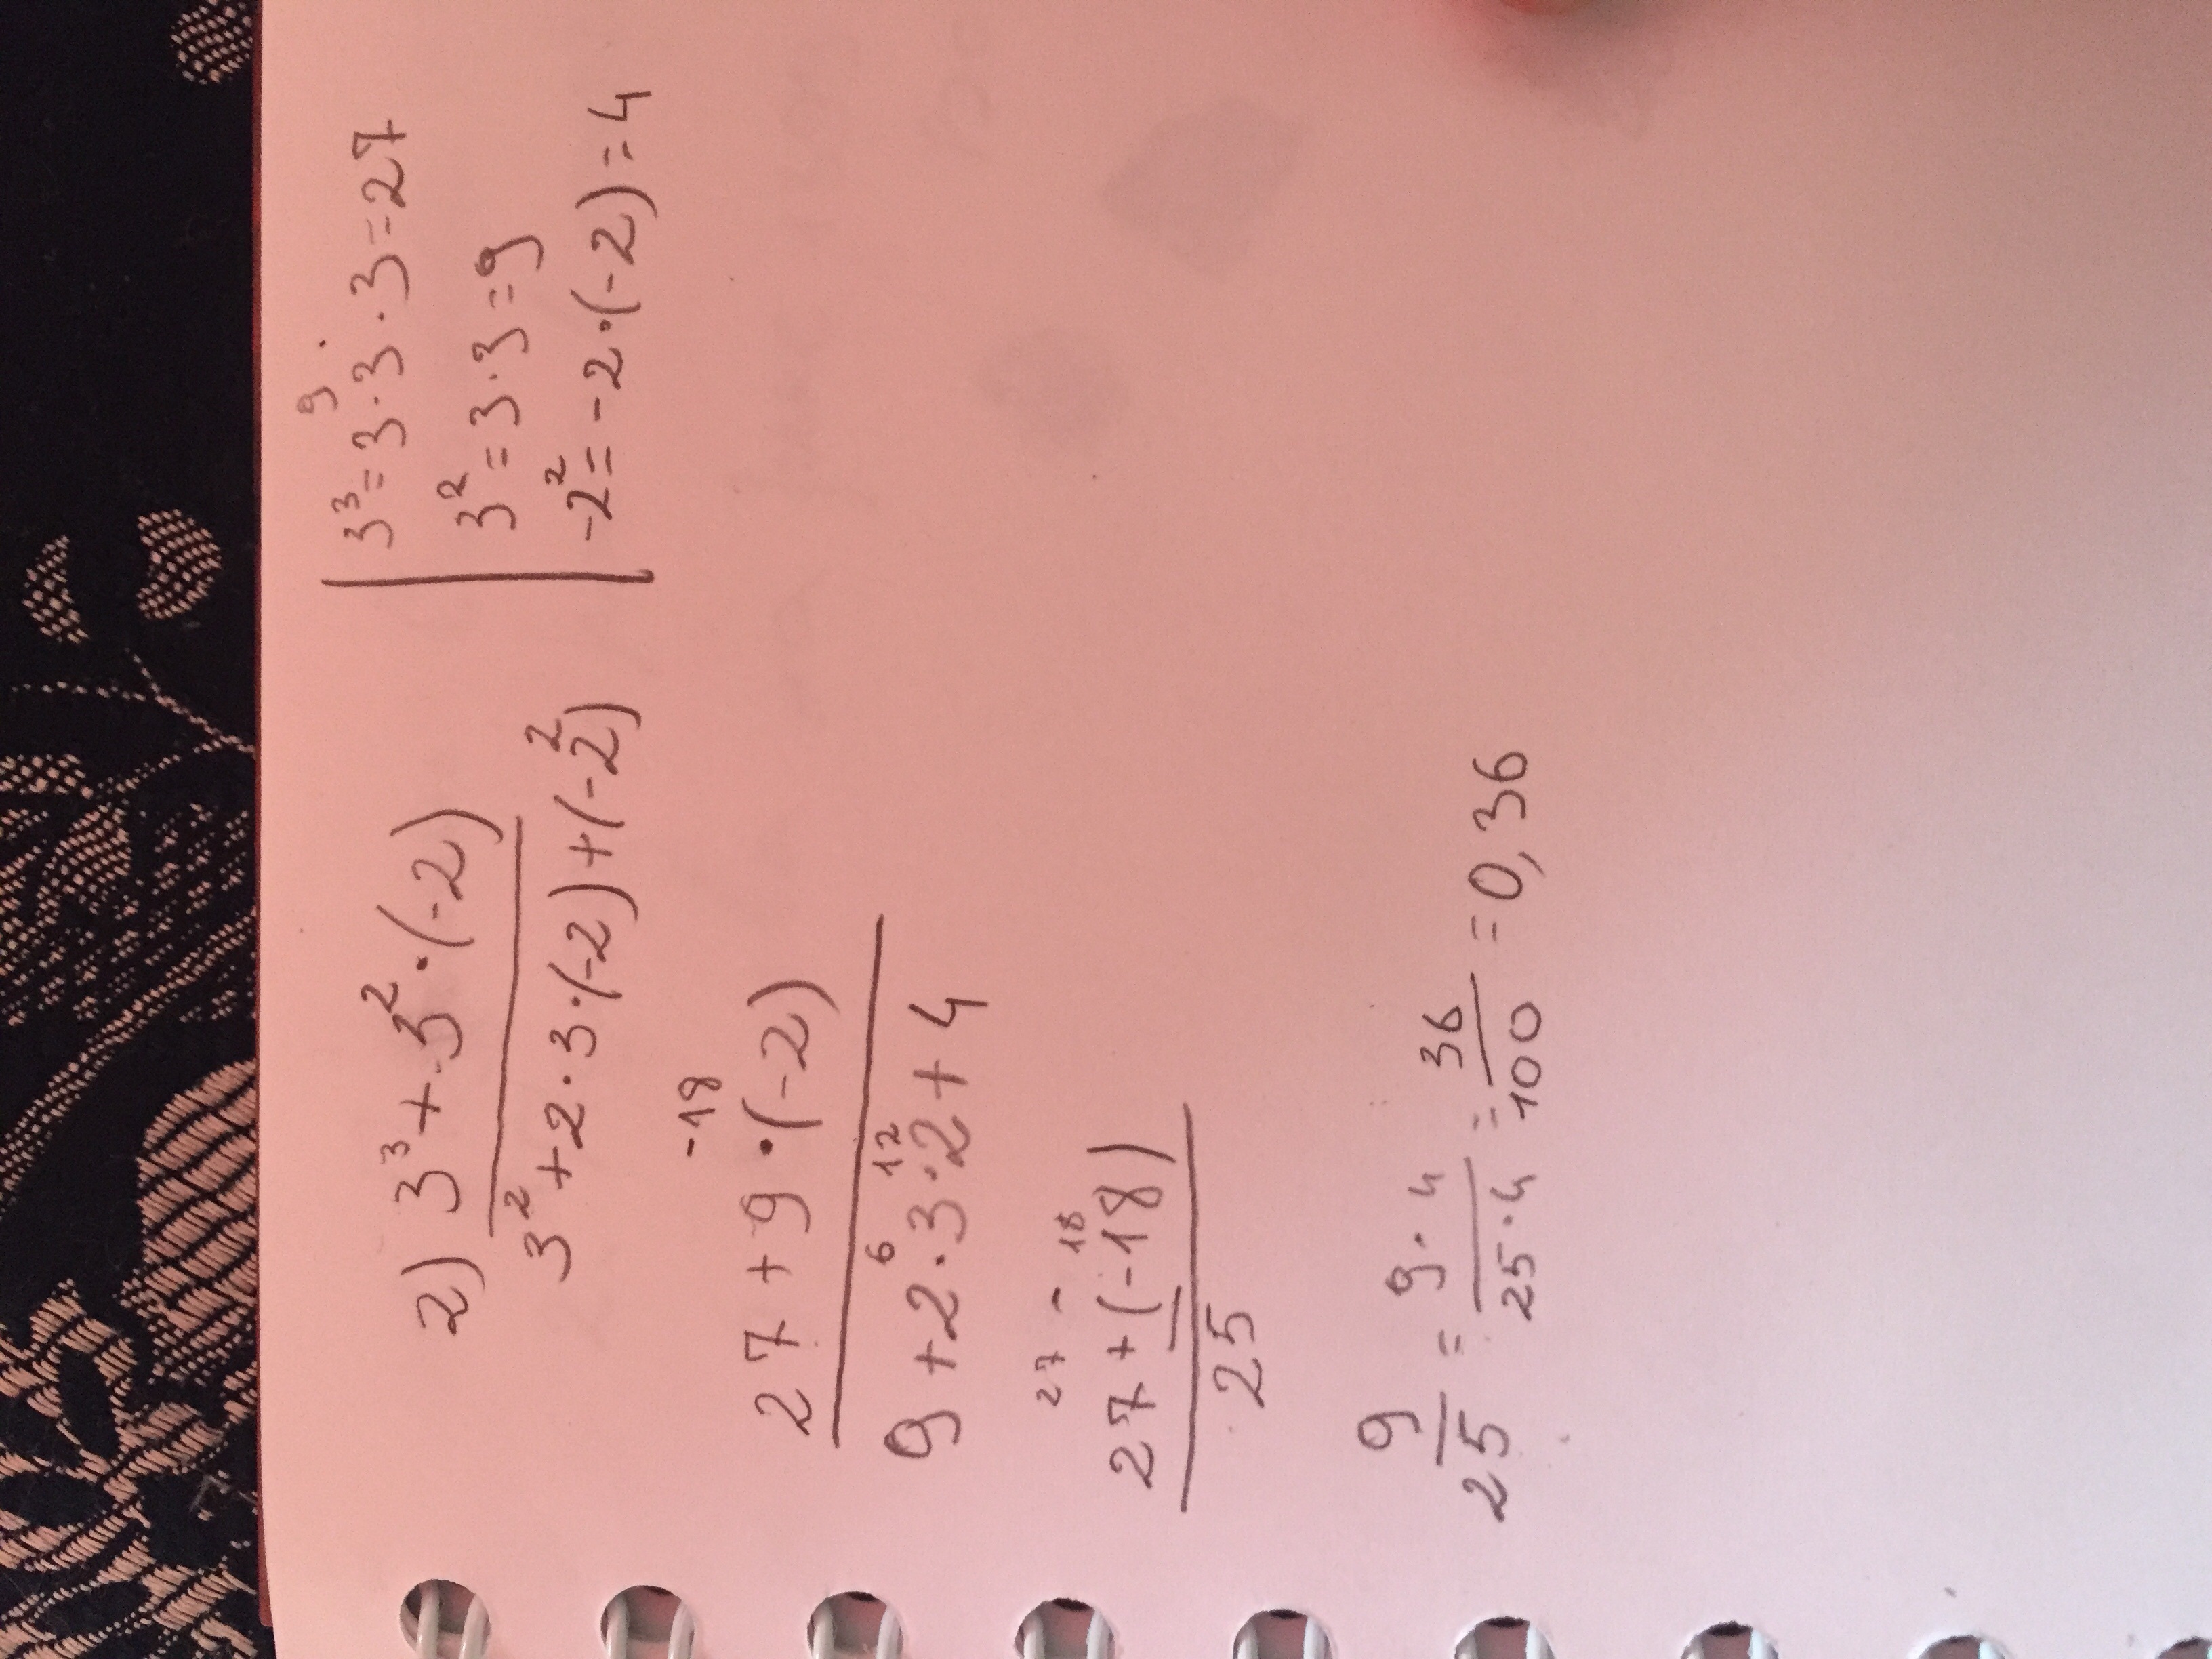 2) 3³ + 3² · (-2)
3² + 2 · 3 · (-2) + (-2²)
9
3³ = 3 · 3 · 3 = 27
3² = 3 · 3 = 9
-2² = -2 · (-2) = 4
-18
27 + 9 · (-2)
6 12
9 + 2 · 3 · 2 + 4
27 - 18
27 + (-18)
25
9/25 = 9 · 4/25 · 4 = 36/100 = 0,36